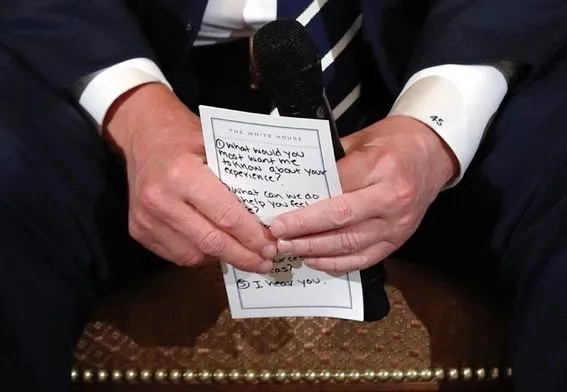 45
THE WHITE HOUSE
① What would you
most want me
to know about your
experience?
What can we do
help you feel
e?
⑤ I hear you.